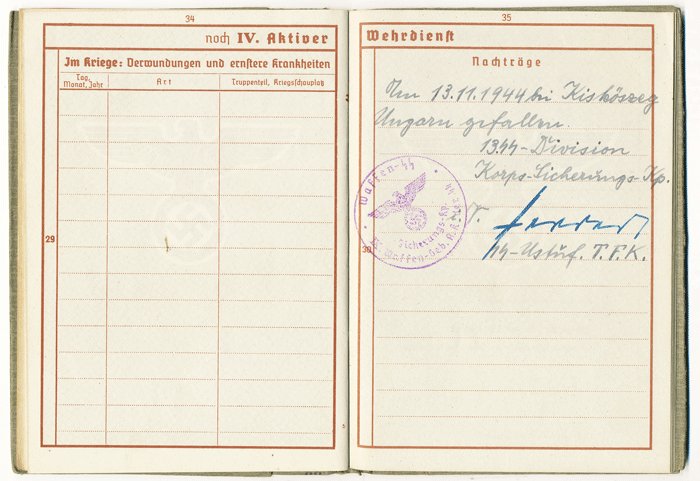 34
noch IV. Aktiver
Im Kriege: Verwundungen und ernstere Krankheiten
Tag, Monat, Jahr
Art
Truppenteil, Kriegsschauplatz
29
35
Wehrdienst
Nachträge
Am 13.11.1944 bei Kisköszeg
Ungarn gefallen.
13.SS-Division
Korps-Sicherungs-Kp.
Waffen-SS
Sicherungs-Kp.
IX. Waffen-Geb. A.K. der SS
30
SS-Ustuf. T.F.K.